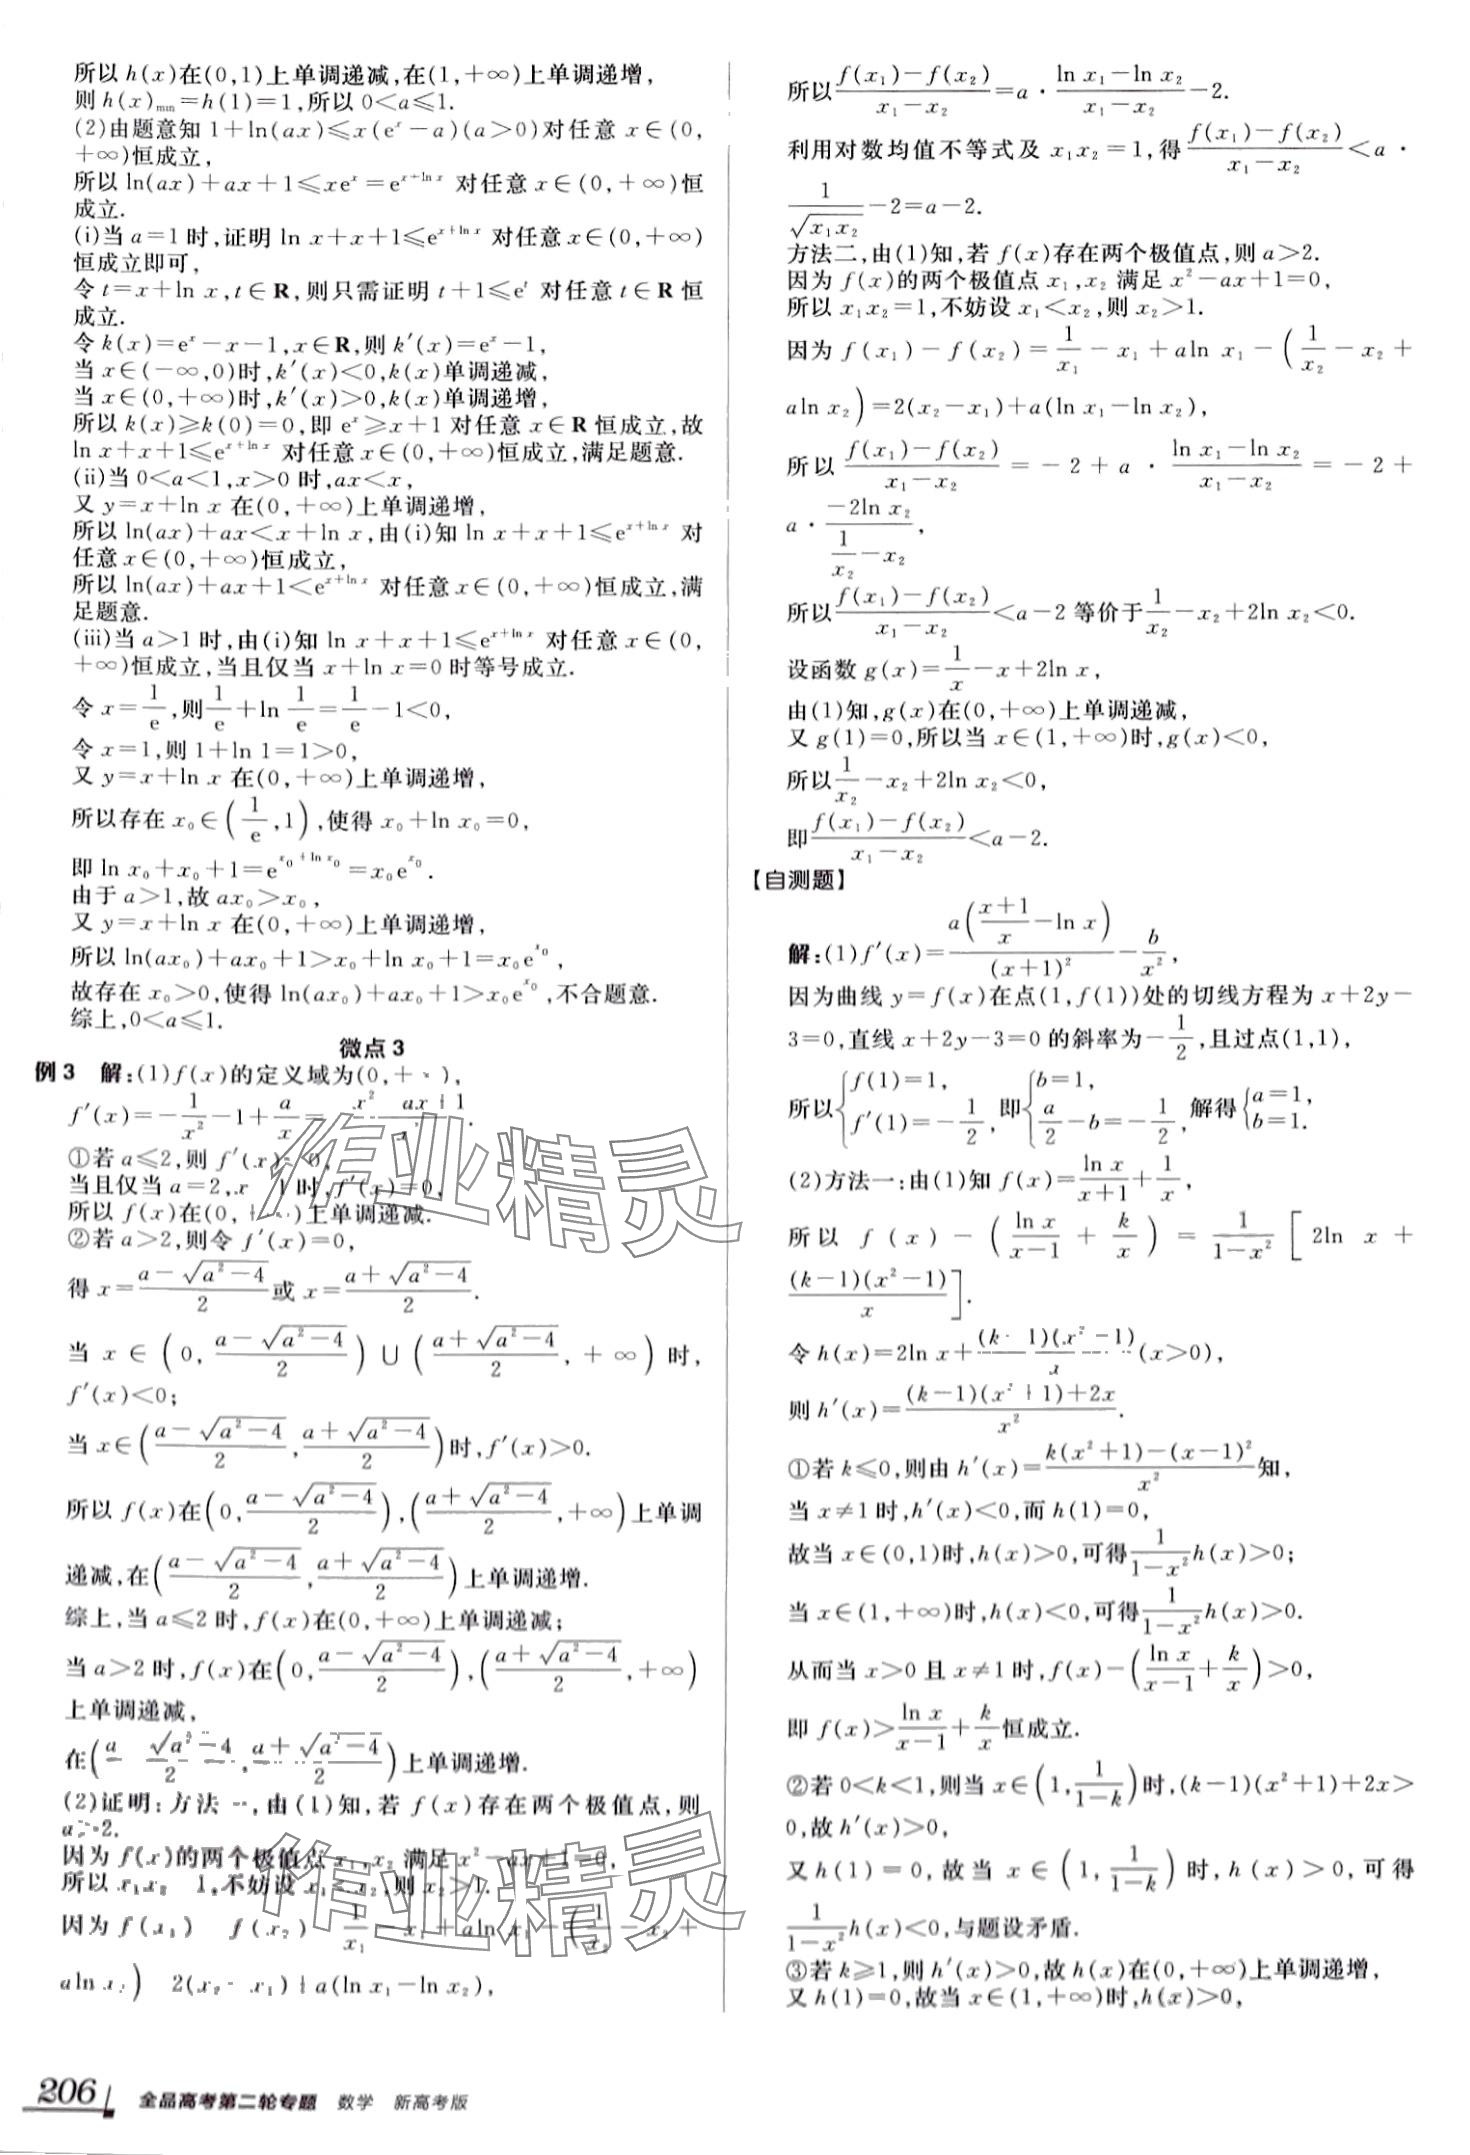 所以 h(x)在(0,1)上单调递减,在(1,+∞)上单调递增,
则 h(x)min=h(1)=1,所以 0<a≤1.
(2)由题意知 1+ln(ax)≤x(eˣ-a)(a>0)对任意 x∈(0,
+∞)恒成立,
所以 ln(ax)+ax+1≤xeˣ=e^{x+ln x} 对任意 x∈(0,+∞)恒
成立.
(i)当 a=1 时,证明 ln x+x+1≤e^{x+ln x} 对任意 x∈(0,+∞)
恒成立即可,
令 t=x+ln x,t∈R,则只需证明 t+1≤eᵗ 对任意 t∈R 恒
成立.
令 k(x)=eˣ-x-1,x∈R,则 k′(x)=eˣ-1,
当 x∈(-∞,0)时,k′(x)<0,k(x)单调递减,
当 x∈(0,+∞)时,k′(x)>0,k(x)单调递增,
所以 k(x)≥k(0)=0,即 eˣ≥x+1 对任意 x∈R 恒成立,故
ln x+x+1≤e^{x+ln x} 对任意 x∈(0,+∞)恒成立,满足题意.
(ii)当 0<a<1,x>0 时,ax<x,
又 y=x+ln x 在(0,+∞)上单调递增,
所以 ln(ax)+ax<x+ln x,由(i)知 ln x+x+1≤e^{x+ln x} 对
任意 x∈(0,+∞)恒成立,
所以 ln(ax)+ax+1<e^{x+ln x} 对任意 x∈(0,+∞)恒成立,满
足题意.
(iii)当 a>1 时,由(i)知 ln x+x+1≤e^{x+ln x} 对任意 x∈(0,
+∞)恒成立,当且仅当 x+ln x=0 时等号成立.
令 x=1/e,则 1/e+ln 1/e=1/e-1<0,
令 x=1,则 1+ln 1=1>0,
又 y=x+ln x 在(0,+∞)上单调递增,
所以存在 x₀∈(1/e,1),使得 x₀+ln x₀=0,
即 ln x₀+x₀+1=e^{x₀+ln x₀}=x₀e^{x₀}.
由于 a>1,故 ax₀>x₀,
又 y=x+ln x 在(0,+∞)上单调递增,
所以 ln(ax₀)+ax₀+1>x₀+ln x₀+1=x₀e^{x₀},
故存在 x₀>0,使得 ln(ax₀)+ax₀+1>x₀e^{x₀},不合题意.
综上,0<a≤1.
微点 3
例 3 解:(1)f(x)的定义域为(0,+ ),
f′(x)=-1/x²-1+a/x= x² ax+1 .
①若 a≤2,则 f′(x) 0,
当且仅当 a=2,x 1 时,f′(x)=0,
所以 f(x)在(0, )上单调递减.
②若 a>2,则令 f′(x)=0,
得 x=(a-√(a²-4))/2 或 x=(a+√(a²-4))/2.
当 x∈(0,(a-√(a²-4))/2)∪((a+√(a²-4))/2,+∞)时,
f′(x)<0;
当 x∈((a-√(a²-4))/2,(a+√(a²-4))/2)时,f′(x)>0.
所以 f(x)在(0,(a-√(a²-4))/2),((a+√(a²-4))/2,+∞)上单调
递减,在((a-√(a²-4))/2,(a+√(a²-4))/2)上单调递增.
综上,当 a≤2 时,f(x)在(0,+∞)上单调递减;
当 a>2 时,f(x)在(0,(a-√(a²-4))/2),((a+√(a²-4))/2,+∞)
上单调递减,
在((a √(a²-4))/2,(a+√(a²-4))/2)上单调递增.
(2)证明:方法一,由(1)知,若 f(x)存在两个极值点,则
a>2.
因为 f(x)的两个极值点 x₁,x₂ 满足 x²-ax+1=0,
所以 x₁x₂ 1,不妨设 x₁<x₂,则 x₂>1.
因为 f(x₁) f(x₂) 1/x₁-x₁+aln x₁-(1/x₂-x₂+
aln x₂) 2(x₂-x₁)+a(ln x₁-ln x₂),
所以 (f(x₁)-f(x₂))/(x₁-x₂)=a·(ln x₁-ln x₂)/(x₁-x₂)-2.
利用对数均值不等式及 x₁x₂=1,得 (f(x₁)-f(x₂))/(x₁-x₂)<a·
1/√(x₁x₂)-2=a-2.
方法二,由(1)知,若 f(x)存在两个极值点,则 a>2.
因为 f(x)的两个极值点 x₁,x₂ 满足 x²-ax+1=0,
所以 x₁x₂=1,不妨设 x₁<x₂,则 x₂>1.
因为 f(x₁)-f(x₂)=1/x₁-x₁+aln x₁-(1/x₂-x₂+
aln x₂)=2(x₂-x₁)+a(ln x₁-ln x₂),
所以 (f(x₁)-f(x₂))/(x₁-x₂)=-2+a·(ln x₁-ln x₂)/(x₁-x₂)=-2+
a·(-2ln x₂)/(1/x₂-x₂),
所以 (f(x₁)-f(x₂))/(x₁-x₂)<a-2 等价于 1/x₂-x₂+2ln x₂<0.
设函数 g(x)=1/x-x+2ln x,
由(1)知,g(x)在(0,+∞)上单调递减,
又 g(1)=0,所以当 x∈(1,+∞)时,g(x)<0,
所以 1/x₂-x₂+2ln x₂<0,
即 (f(x₁)-f(x₂))/(x₁-x₂)<a-2.
【自测题】
解:(1)f′(x)=a((x+1)/x-ln x)/(x+1)²-b/x²,
因为曲线 y=f(x)在点(1,f(1))处的切线方程为 x+2y-
3=0,直线 x+2y-3=0 的斜率为-1/2,且过点(1,1),
所以{f(1)=1, f′(1)=-1/2, 即{b=1, a/2-b=-1/2, 解得{a=1, b=1.
(2)方法一:由(1)知 f(x)=ln x/(x+1)+1/x,
所以 f(x)-(ln x/(x-1)+k/x)=1/(1-x²)[2ln x+
(k-1)(x²-1)/x].
令 h(x)=2ln x+(k-1)(x²-1)/x(x>0),
则 h′(x)=((k-1)(x²+1)+2x)/x².
①若 k≤0,则由 h′(x)=(k(x²+1)-(x-1)²)/x² 知,
当 x≠1 时,h′(x)<0,而 h(1)=0,
故当 x∈(0,1)时,h(x)>0,可得 1/(1-x²)h(x)>0;
当 x∈(1,+∞)时,h(x)<0,可得 1/(1-x²)h(x)>0.
从而当 x>0 且 x≠1 时,f(x)-(ln x/(x-1)+k/x)>0,
即 f(x)>ln x/(x-1)+k/x 恒成立.
②若 0<k<1,则当 x∈(1,1/(1-k))时,(k-1)(x²+1)+2x>
0,故 h′(x)>0,
又 h(1)=0,故当 x∈(1,1/(1-k))时,h(x)>0,可得
1/(1-x²)h(x)<0,与题设矛盾.
③若 k≥1,则 h′(x)>0,故 h(x)在(0,+∞)上单调递增,
又 h(1)=0,故当 x∈(1,+∞)时,h(x)>0,
作业精灵
作业精灵
206 全品高考第二轮专题 数学 新高考版